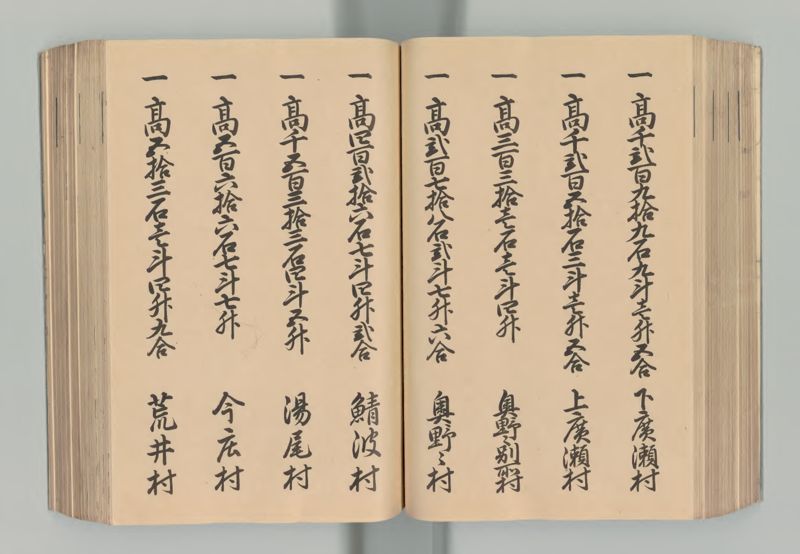 一 高千弐百九拾九石九斗壱升五合 下廣瀬村
一 高千弐百五拾石三斗壱升五合 上廣瀬村
一 高三百三拾壱石壱斗四升 奥野別所村
一 高弐百七拾八石弐斗七升六合 奥野々村
一 高四百弐拾六石七斗四升弐合 鯖波村
一 高千五百三拾三石四斗五升 湯尾村
一 高五百六拾六石七斗七升 今庄村
一 高五拾三石壱斗四升九合 荒井村